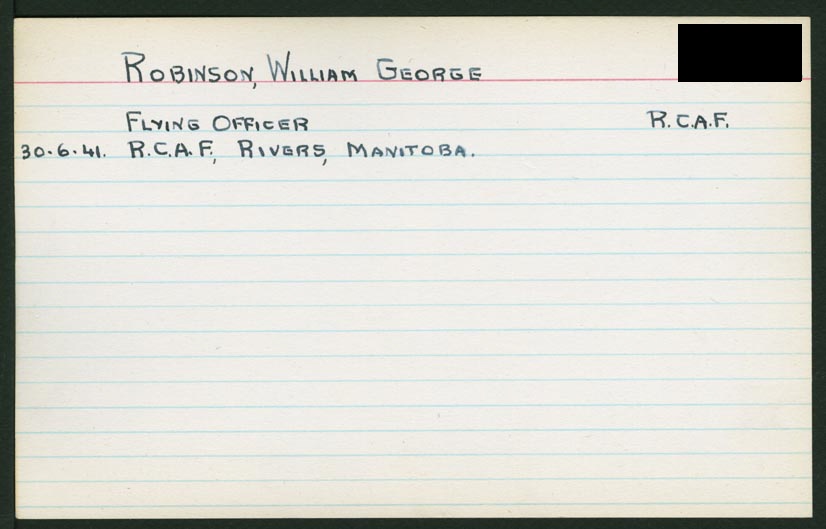 ROBINSON, WILLIAM GEORGE
FLYING OFFICER R.C.A.F.
30.6.41. R.C.A.F., RIVERS, MANITOBA.